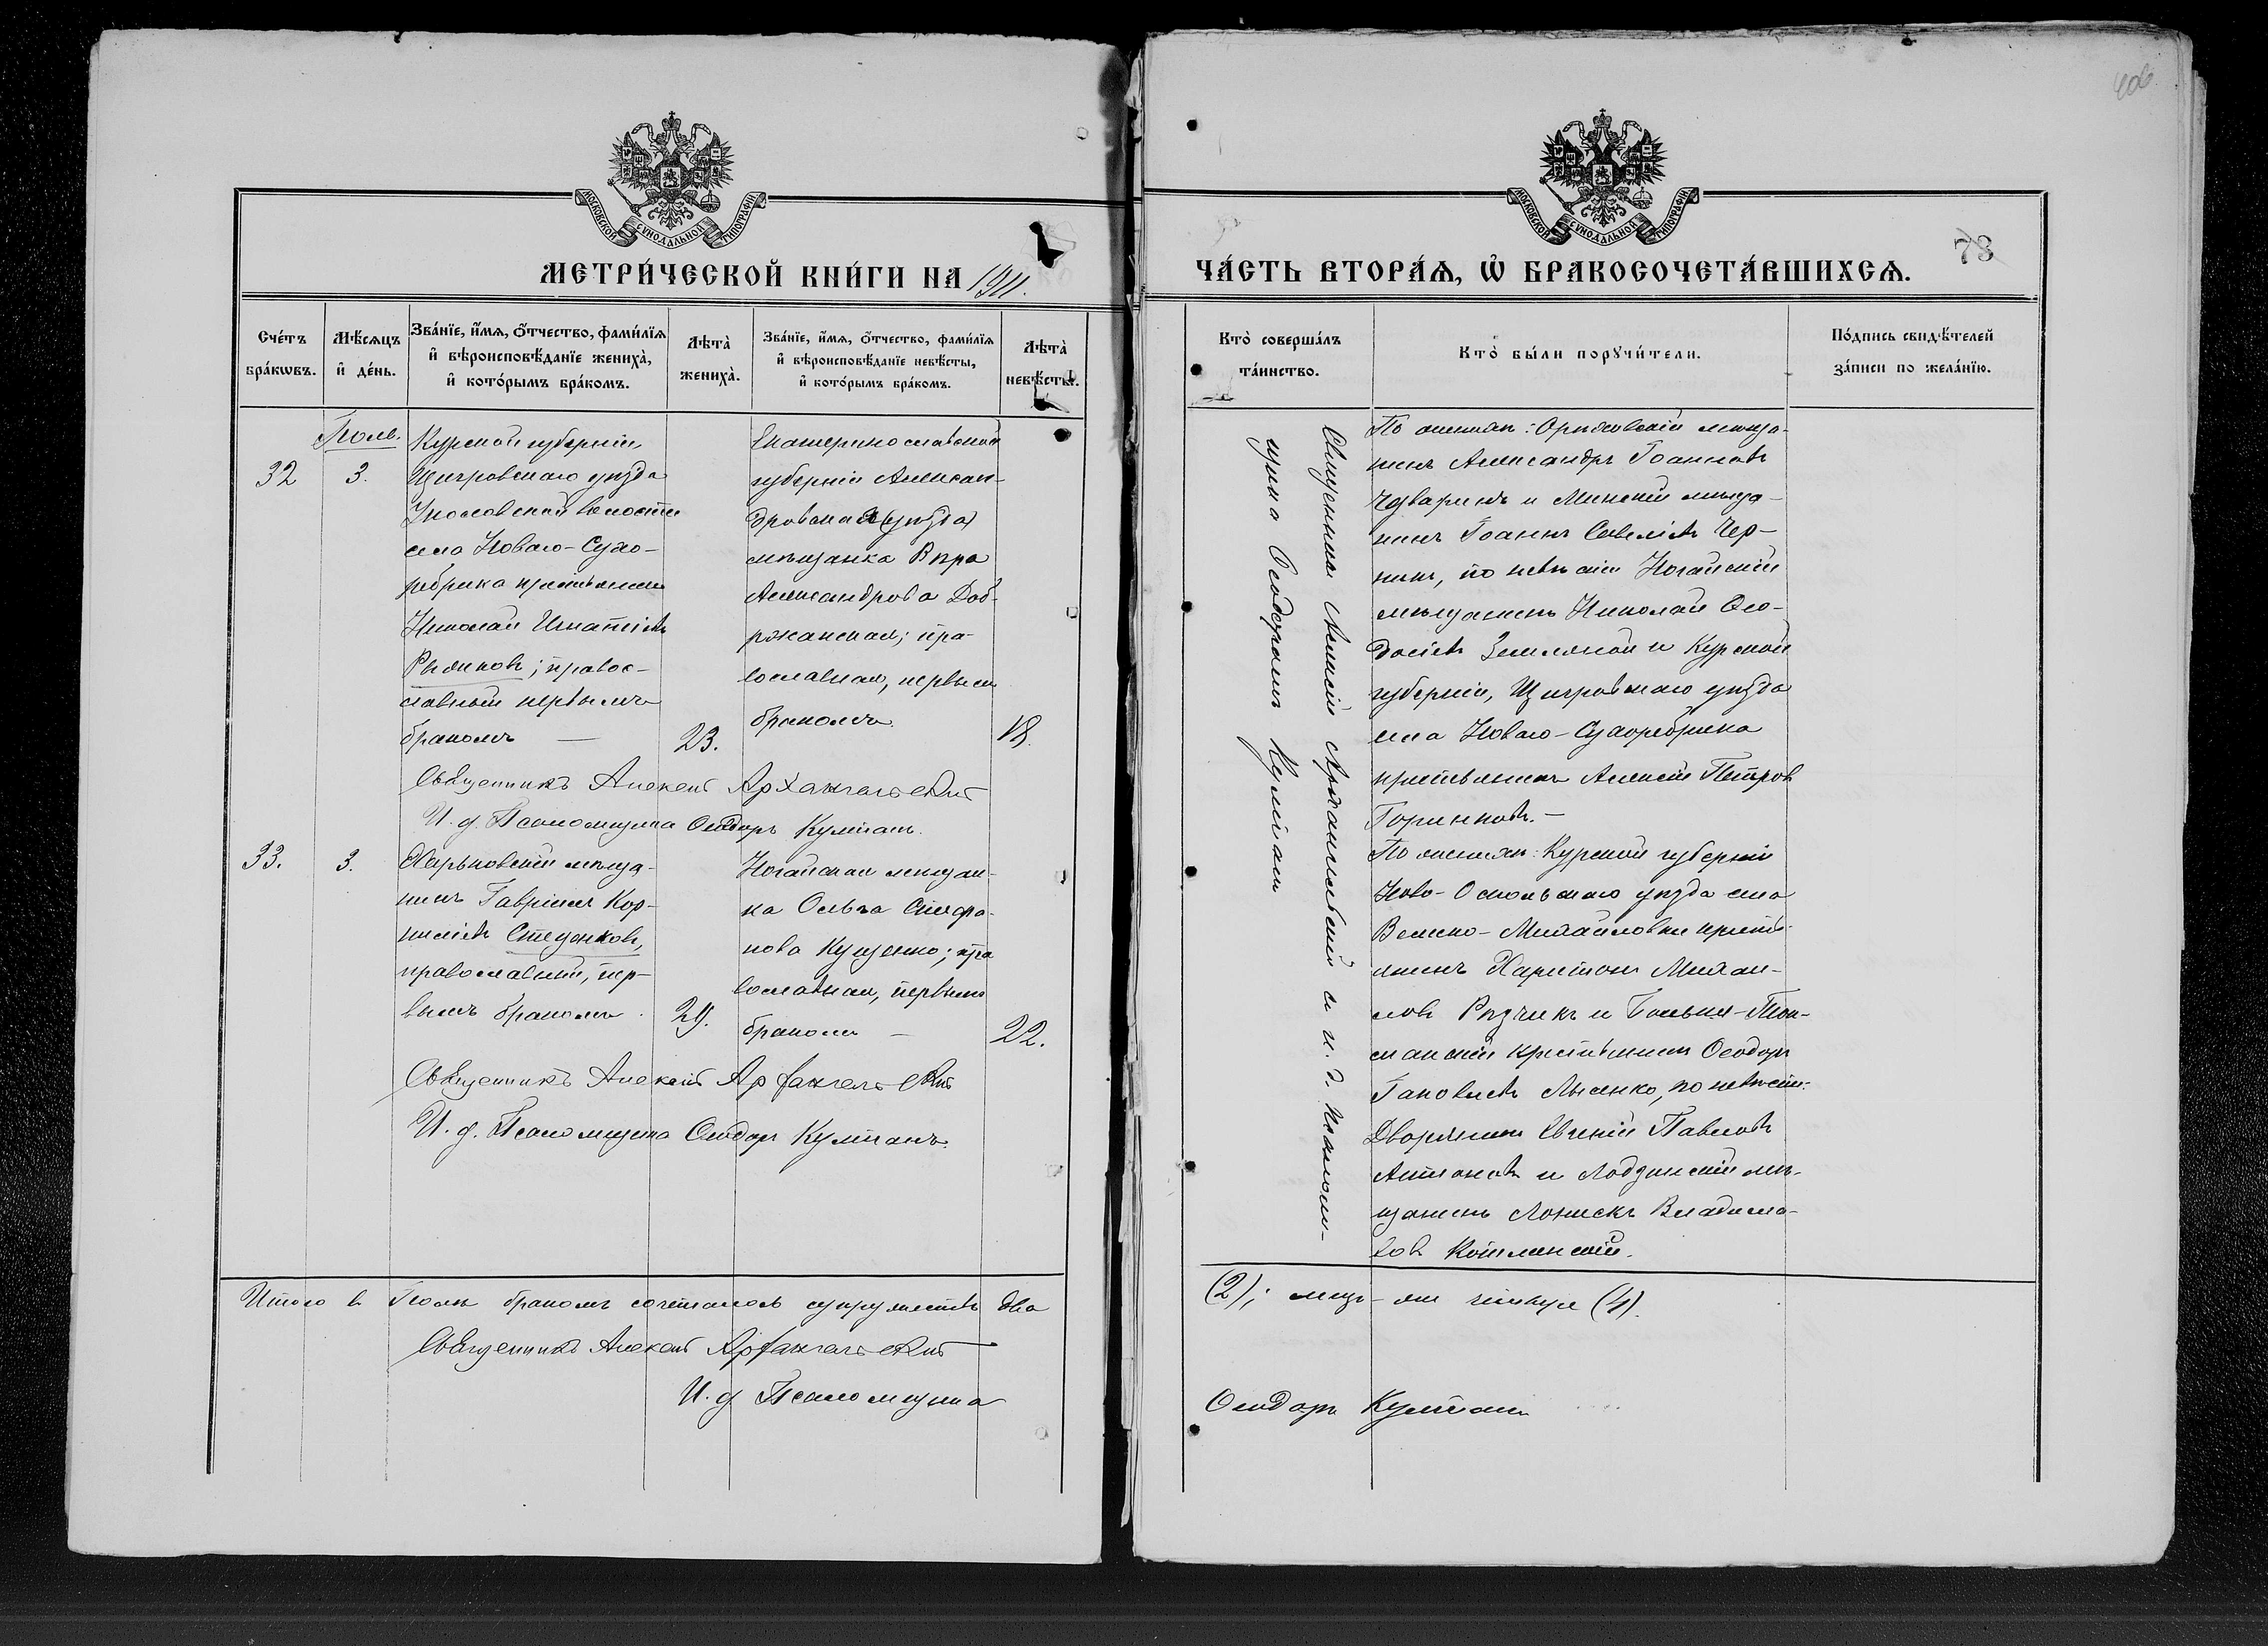 МОСКОВСКОЙ СѴНОДАЛЬНОЙ ТИПОГРАФІИ
МЕТРИ́ЧЕСКОЙ КНИ́ГИ НА 1911.
Сче́тъ бра́кωвъ.
Мѣ́сѧцъ и҆ де́нь.
Зва́нїе, и҆́мѧ, ѻ҆́тчество, фами́лїѧ
и҆ вѣроисповѣ́данїе жениха̀,
и҆ кото́рымъ бра́комъ.
Лѣта̀ жениха̀.
Зва́нїе, и҆́мѧ, ѻ҆́тчество, фами́лїѧ
и҆ вѣроисповѣ́данїе невѣ́сты,
и҆ кото́рымъ бра́комъ.
Лѣта̀ невѣ́сты.
Іюль.
32
3.
Курской губерніи
Щигровскаго уѣзда
волости
села Новаго-Сухо-
ребрика крестьянинъ
Николай Игнатіевъ
Рыжковъ; правос-
лавный первымъ
бракомъ —
23.
Екатеринославской
губерніи Алексан-
дровскаго уѣзда
мѣщанка Вѣра
Александрова Доб-
ржанская; пра-
вославная, первымъ
бракомъ
18.
Священникъ Алексій Архангельскій
И. д. Псаломщика Ѳеодоръ Кулишъ.
33.
3.
Харьковскій мѣща-
нинъ Гавріилъ Кор-
ниліевъ Стеценковъ,
православный, пер-
вымъ бракомъ.
29.
Ногайская мѣщан-
ка Ольга Стефа-
нова Куценко; пра-
вославная, первымъ
бракомъ —
22.
Священникъ Алексій Архангельскій
И. д. Псаломщика Ѳеодоръ Кулишъ.
Итого въ Іюлѣ бракомъ сочеталось супружествъ два
Священникъ Алексій Архангельскій
И. д. Псаломщика
406
МОСКОВСКОЙ СѴНОДАЛЬНОЙ ТИПОГРАФІИ
73
ЧА́СТЬ ВТОРА́Ѧ, Ѡ҆ БРАКОСОЧЕТА́ВШИХСѦ.
Кто̀ соверша́лъ та́инство.
Кто̀ бы́ли порꙋчи́тели.
По́дпись свидѣ́телей за́писи по жела́нїю.
Священникъ Алексій Архангельскій и и. д. псалом-
щика Ѳеодоръ Кулишъ
По женихѣ: Орѣховскій мѣща-
нинъ Александръ Іоанновъ
Чуваринъ и Минскій мѣща-
нинъ Іоаннъ Савеліевъ Чер-
нинъ, по невѣстѣ Ногайскій
мѣщанинъ Николай Ѳео-
досіевъ Земляной и Курской
губерніи, Щигровскаго уѣзда
села Новаго-Сухоребрика
крестьянинъ Алексѣй Петровъ
Горяиновъ.—
По женихѣ: Курской губерніи
Ново-Оскольскаго уѣзда села
Велико-Михайловки кресть-
янинъ Харитонъ Михаи-
ловъ Рѣзчикъ и Больше-Ток-
макскій крестьянинъ Ѳеодоръ
Іаковлевъ Лысенко, по невѣстѣ:
Дворянинъ Евгеній Павловъ
Антоновъ и Лодзинскій мѣ-
щанинъ
(2);
Ѳеодоръ Кулишъ